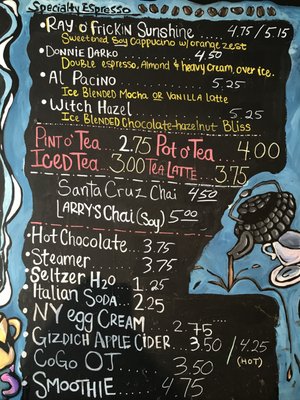 Specialty Espresso
• Ray o' frickin Sunshine ..... 4.75 / 5.15
Sweetened Soy Cappucino w/orange zest
• Donnie Darko ..... 4.50
Double espresso, Almond & heavy cream, over ice.
• Al Pacino ..... 5.25
Ice Blended Mocha or Vanilla latte
• Witch Hazel ..... 5.25
Ice Blended Chocolate-hazelnut Bliss
Pint o' Tea ... 2.75 Pot o' Tea ... 4.00
Iced Tea ... 3.00 Tea Latte ... 3.75
Santa Cruz Chai 4.50
Larry's Chai (Soy) 5.00
• Hot Chocolate ... 3.75
• Steamer ... 3.75
• Seltzer H2O ... 1.25
• Italian Soda ... 2.25
• NY egg Cream ... 2.75
• Gizdich Apple Cider .. 3.50 / 4.25
(HOT)
• CoGo OJ ... 3.50
• Smoothie ... 4.75